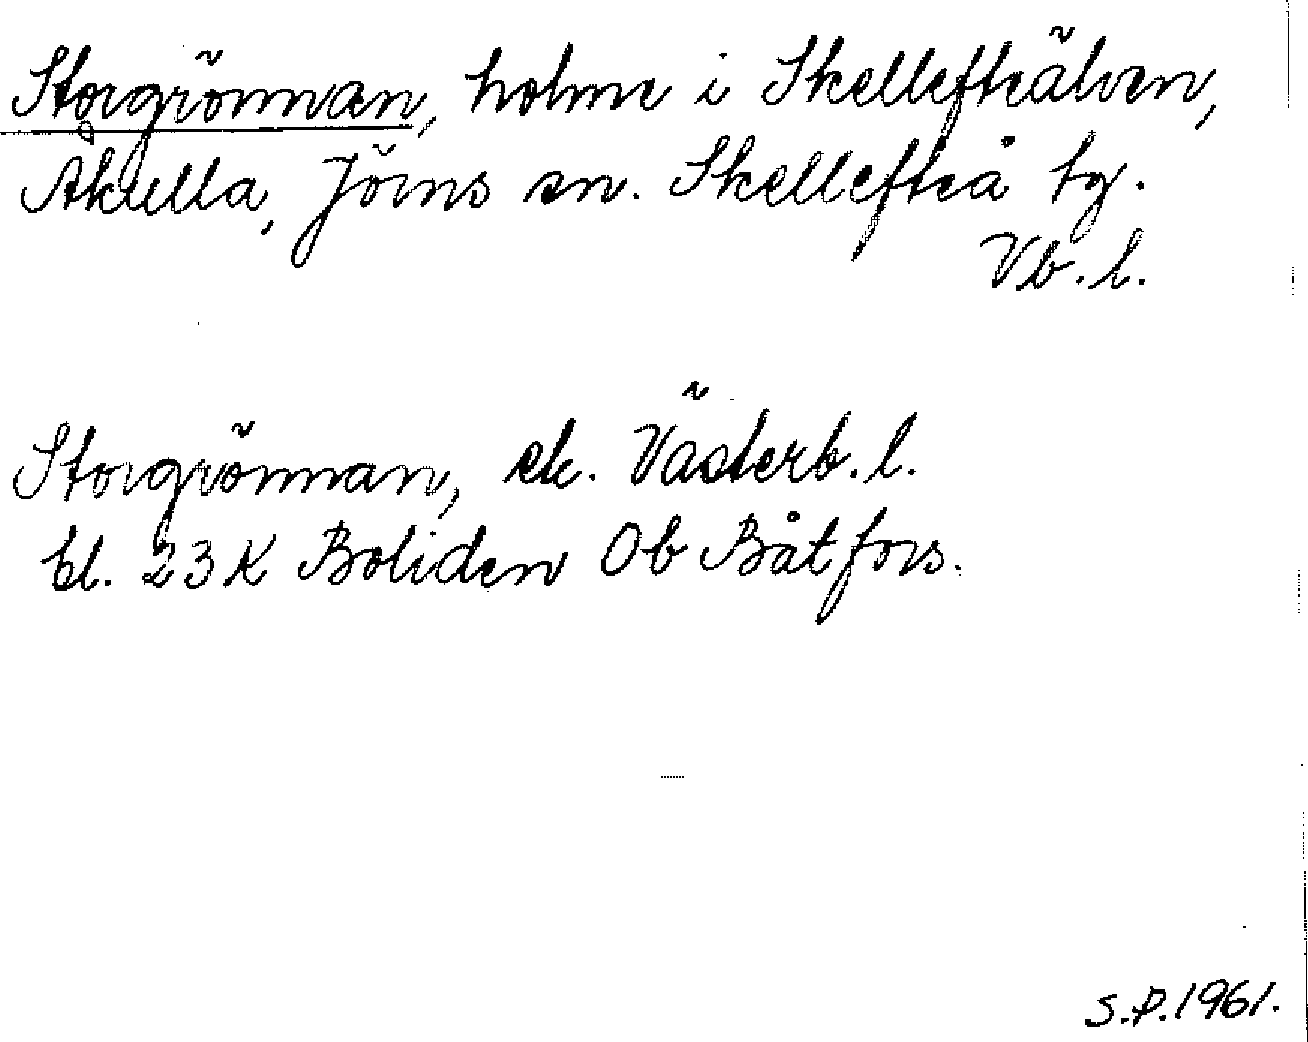 Storgrönnan, holme i Skellefteälven,
Åkulla, Jörns sn. Skellefteå tg.
Vb. l.
Storgrönnan, ek. Västerb. l.
bl. 23 K Boliden Ob Båtfors.
S.P. 1961.